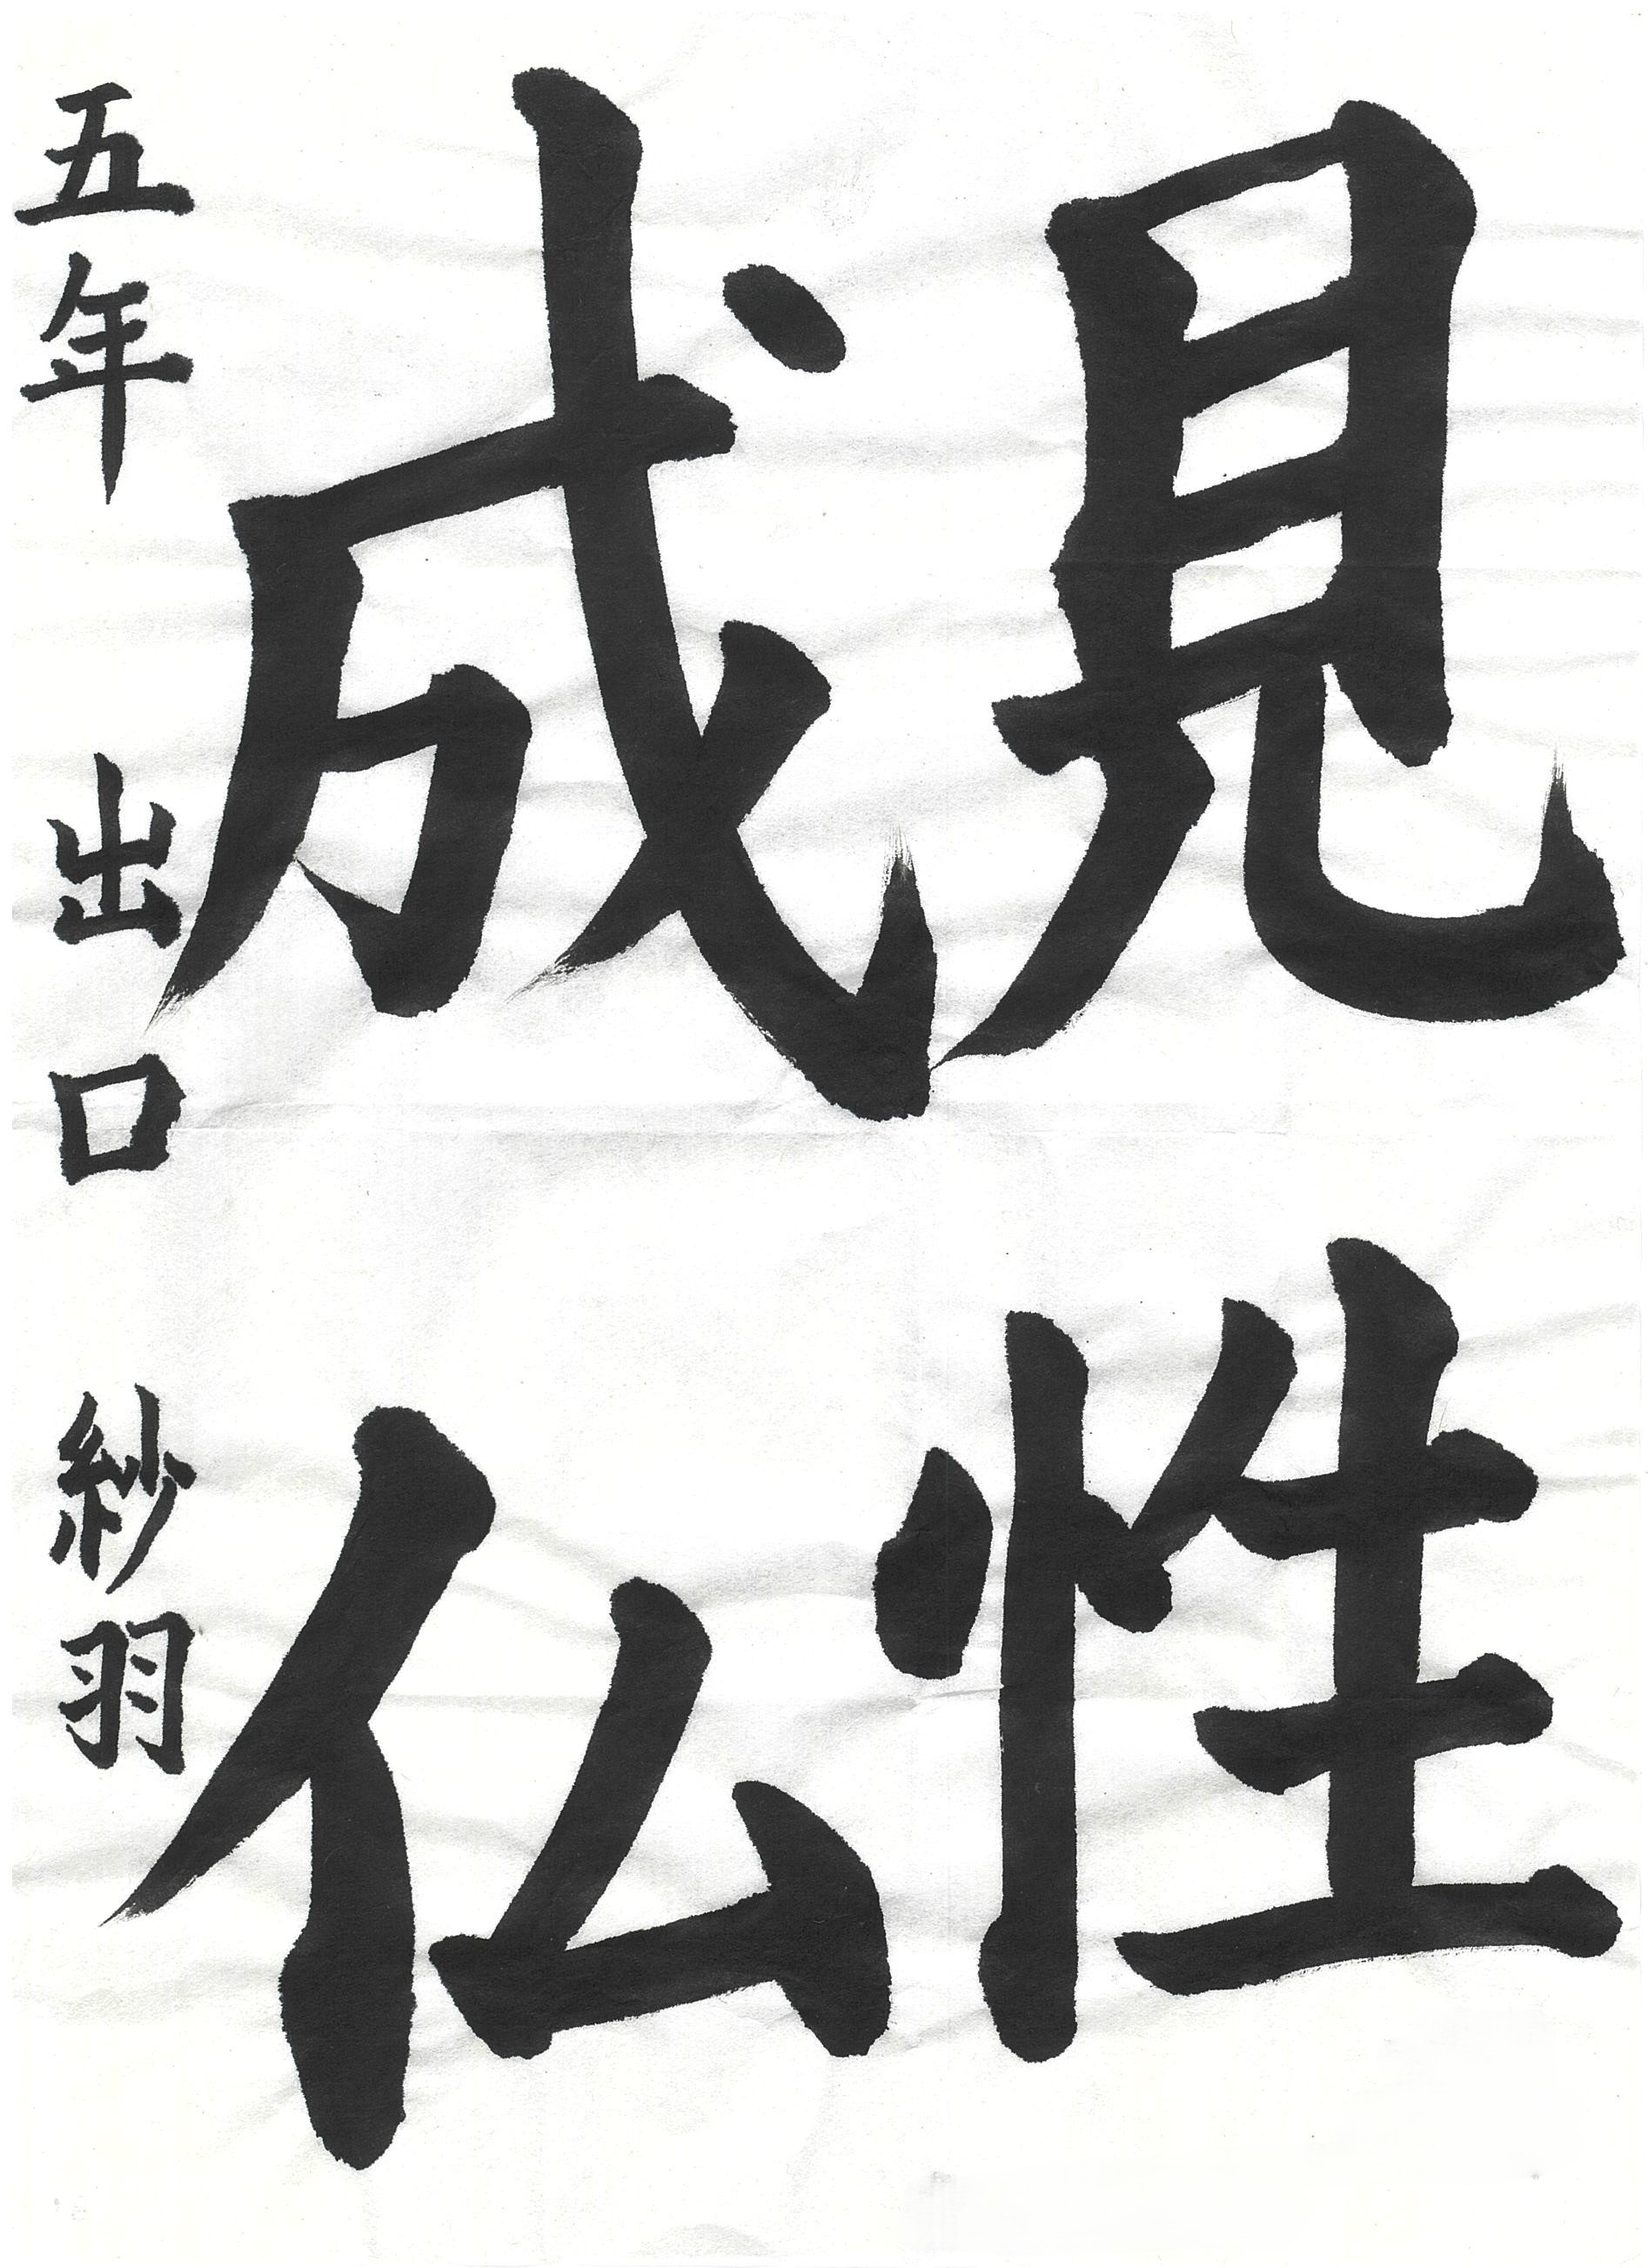 見性
成仏
五年 出口 紗羽